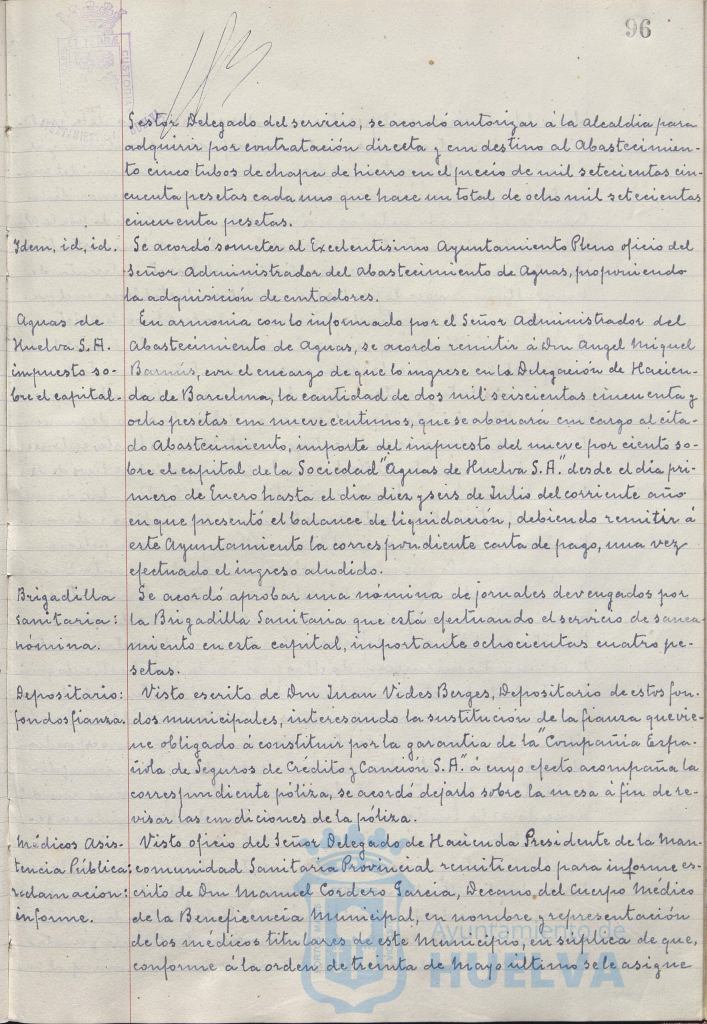 96
Gestor Delegado del servicio, se acordó autorizar á la Alcaldia para
adquirir por contratación directa y con destino al Abastecimien-
to cinco tubos de chapa de hierro en el precio de mil setecientas cin-
cuenta pesetas cada uno que hace un total de ocho mil setecientas
cincuenta pesetas.
Idem, id, id.
Se acordó someter al Excelentisimo Ayuntamiento Pleno oficio del
Señor Administrador del Abastecimiento de Aguas, proponiendo
la adquisición de contadores.
Aguas de
Huelva S.A.
impuesto so-
bre el capital.
En armonia con lo informado por el Señor Administrador del
Abastecimiento de Aguas, se acordó remitir á Don Angel Miquel
Barnús, con el encargo de que lo ingrese en la Delegación de Hacien-
da de Barcelona, la cantidad de dos mil seiscientas cincuenta y
ocho pesetas con nueve centimos, que se abonará con cargo al cita-
do Abastecimiento, importe del impuesto del nueve por ciento so-
bre el capital de la Sociedad "Aguas de Huelva S.A." desde el dia pri-
mero de Enero hasta el dia diez y seis de Julio del corriente año
en que presentó el balance de liquidación, debiendo remitir á
este Ayuntamiento la correspondiente carta de pago, una vez
efectuado el ingreso aludido.
Brigadilla
sanitaria:
nómina.
Se acordó aprobar una nómina de jornales devengados por
la Brigadilla Sanitaria que está efectuando el servicio de sanea-
miento en esta capital, importante ochocientas cuatro pe-
setas.
Depositario:
fondos fianza.
Visto escrito de Don Juan Vides Berges, Depositario de estos fon-
dos municipales, interesando la sustitución de la fianza que vie-
ne obligado á constituir por la garantia de la "Compañia Espa-
ñola de Seguros de Crédito y Caución S.A." á cuyo efecto acompaña la
correspondiente póliza, se acordó dejarlo sobre la mesa á fin de re-
visar las condiciones de la póliza.
Médicos Asis-
tencia Pública:
reclamacion:
informe.
Visto oficio del Señor Delegado de Hacienda Presidente de la Man-
comunidad Sanitaria Provincial remitiendo para informe es-
crito de Don Manuel Cordero Garcia, Decano, del Cuerpo Médico
de la Beneficencia Municipal, en nombre y representación
de los médicos titulares de este Municipio, en súplica de que,
conforme á la orden de treinta de Mayo último se le asigne
Ayuntamiento de
HUELVA